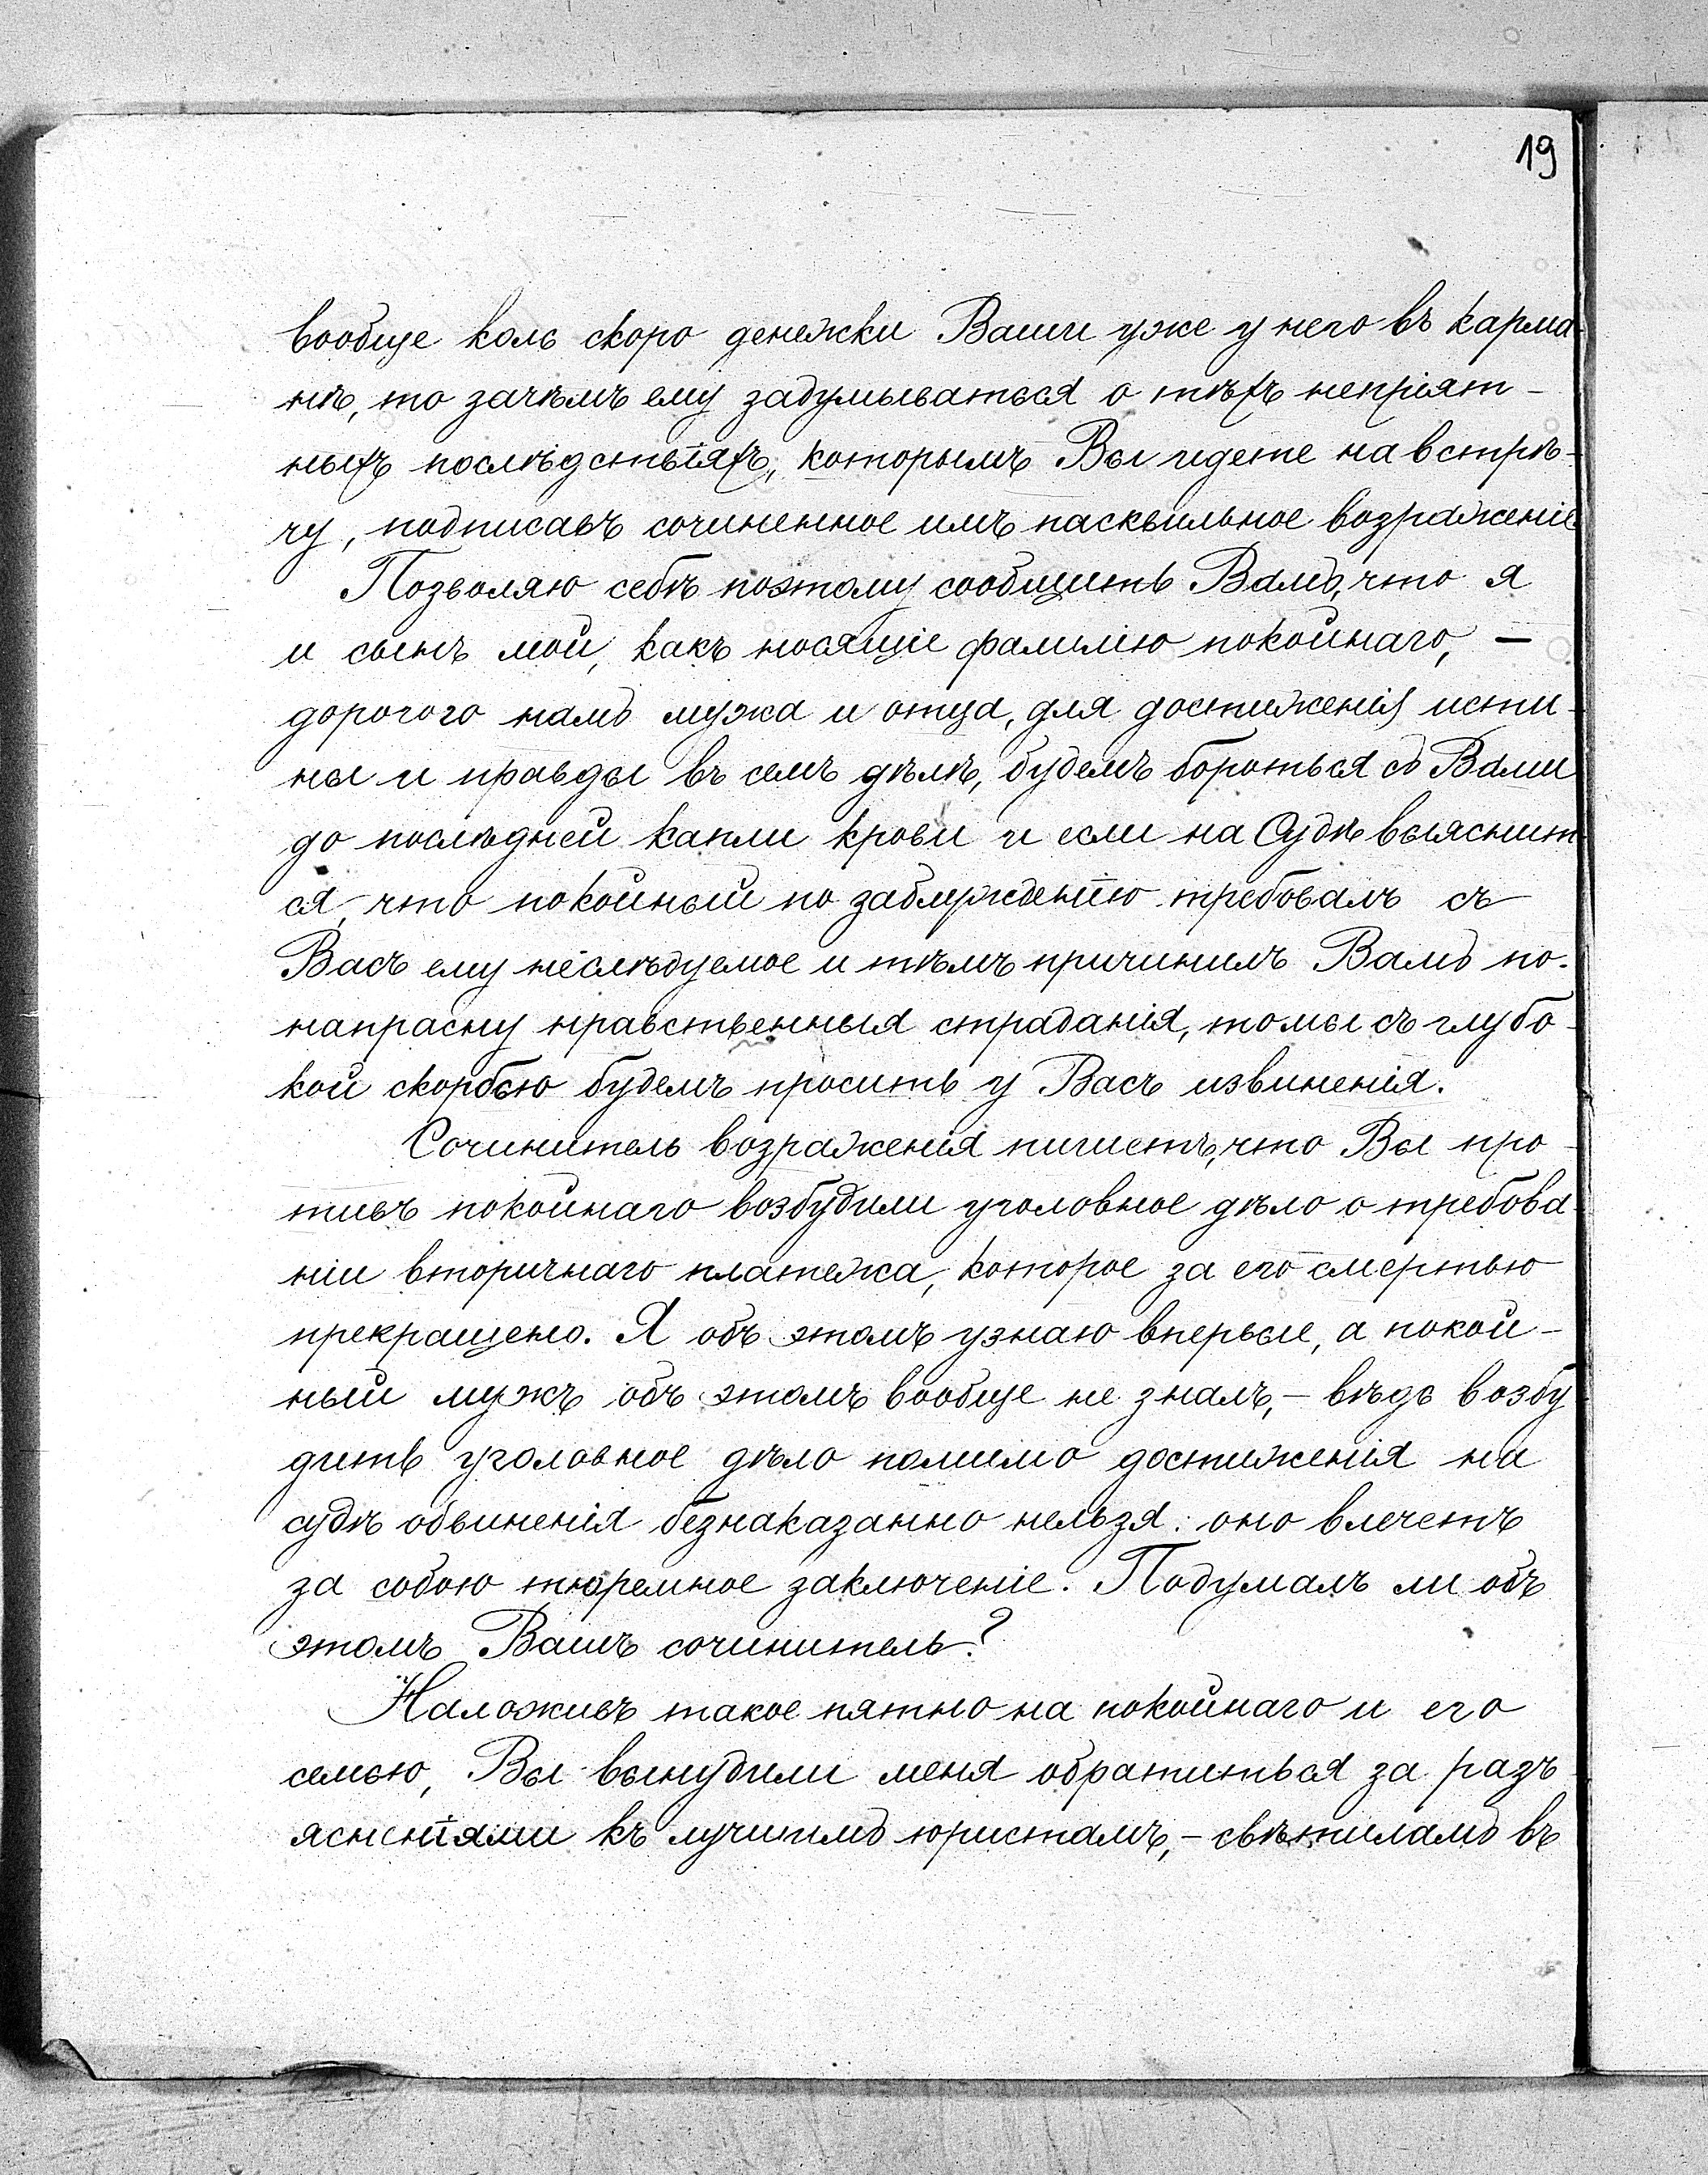 19
вообще коль скоро денежки Ваши уже у него въ карма-
нѣ, то зачѣмъ ему задумываться о тѣхъ непріят-
ныхъ послѣдствіяхъ, которымъ Вы идете на встрѣ-
чу, подписавъ сочиненное имъ пасквильное возраженіе
Позволяю себѣ поэтому сообщить Вамъ, что я
и сынъ мой, какъ носящіе фамилію покойнаго, —
дорогого намъ мужа и отца, для достиженія исти-
ны и правды въ семъ дѣлѣ, будемъ бороться съ Вами
до послѣдней капли крови и если на Судѣ выяснит-
ся, что покойный по заблужденію требовалъ съ
Васъ ему неслѣдуемое и тѣмъ причинилъ Вамъ по-
напрасну нравственныя страданія, то мы съ глубо-
кой скорбью будемъ просить у Васъ извиненія.
Сочинитель возраженія пишетъ, что Вы про-
тивъ покойнаго возбудили уголовное дѣло о требова-
ніи вторичнаго платежа, которое за его смертью
прекращено. Я объ этомъ узнаю впервые, а покой-
ный мужъ объ этомъ вообще не зналъ, – вѣдь возбу-
дить уголовное дѣло помимо достиженія на
судѣ обвиненія безнаказанно нельзя: оно влечетъ
за собою тюремное заключеніе. Подумалъ ли объ
этомъ Вашъ сочинитель?
Наложивъ такое пятно на покойнаго и его
семью, Вы вынудили меня обратиться за разъ-
ясненіями къ лучшимъ юристамъ, – свѣтиламъ въ